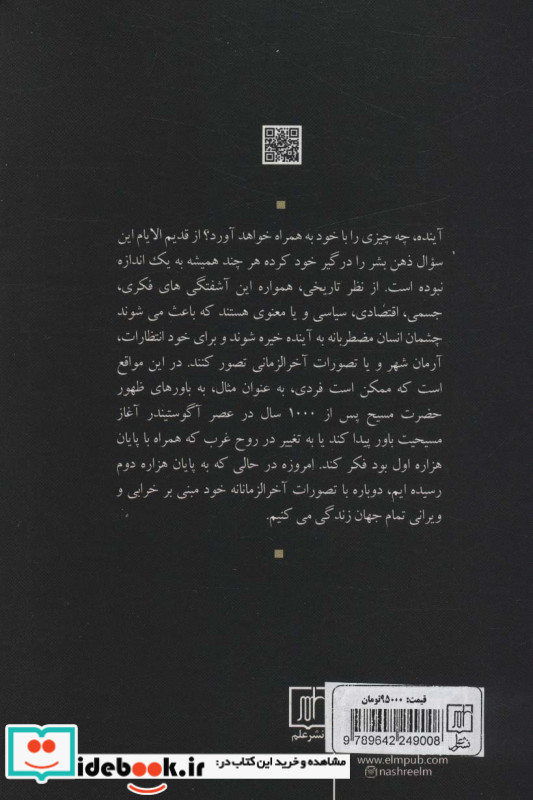 آینده، چه چیزی را با خود به همراه خواهد آورد؟ از قدیم الایام این
سؤال ذهن بشر را درگیر خود کرده هر چند همیشه به یک اندازه
نبوده است. از نظر تاریخی، همواره این آشفتگی های فکری،
جسمی، اقتصادی، سیاسی و یا معنوی هستند که باعث می شوند
چشمان انسان مضطربانه به آینده خیره شوند و برای خود انتظارات،
آرمان شهر و یا تصورات آخرالزمانی تصور کنند. در این مواقع
است که ممکن است فردی، به عنوان مثال، به باورهای ظهور
حضرت مسیح پس از ۱۰۰۰ سال در عصر آگوستیندر آغاز
مسیحیت باور پیدا کند یا به تغییر در روح غرب که همراه با پایان
هزاره اول بود فکر کند. امروزه در حالی که به پایان هزاره دوم
رسیده ایم، دوباره با تصورات آخرالزمانانه خود مبنی بر خرابی و
ویرانی تمام جهان زندگی می کنیم.
نشر علم
قیمت: ۹۵۰۰۰تومان
نشر علم
9 789642 249008
www.elmpub.com
nashreelm
idebook.ir
مشاهده و خرید این کتاب در: